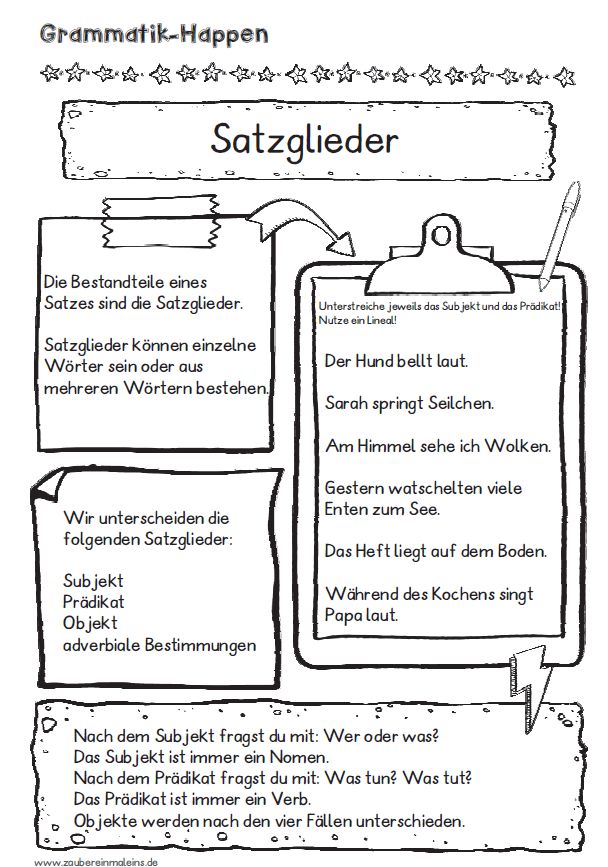 Grammatik-Happen
Satzglieder
Die Bestandteile eines
Satzes sind die Satzglieder.
Satzglieder können einzelne
Wörter sein oder aus
mehreren Wörtern bestehen.
Wir unterscheiden die
folgenden Satzglieder:
Subjekt
Prädikat
Objekt
adverbiale Bestimmungen
Unterstreiche jeweils das Subjekt und das Prädikat!
Nutze ein Lineal!
Der Hund bellt laut.
Sarah springt Seilchen.
Am Himmel sehe ich Wolken.
Gestern watschelten viele
Enten zum See.
Das Heft liegt auf dem Boden.
Während des Kochens singt
Papa laut.
Nach dem Subjekt fragst du mit: Wer oder was?
Das Subjekt ist immer ein Nomen.
Nach dem Prädikat fragst du mit: Was tun? Was tut?
Das Prädikat ist immer ein Verb.
Objekte werden nach den vier Fällen unterschieden.
www.zaubereinmaleins.de